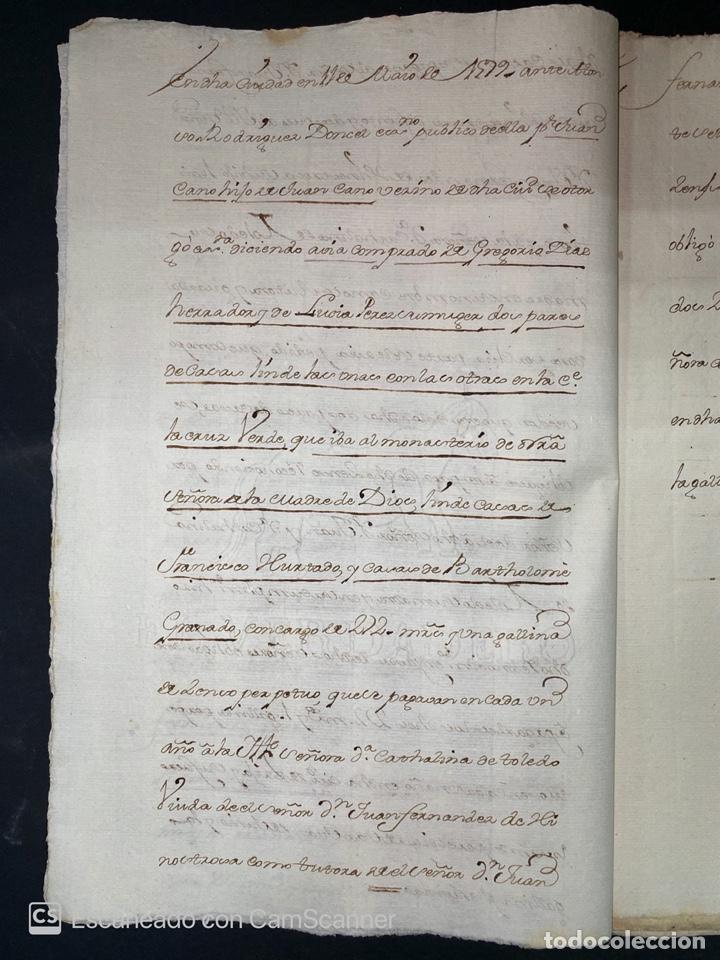 En dha Ciudad en 11 de Maio de 1579 ante Alon
so Rodriguez Doncel esno. publico de ella pr. Juan
Cano hijo de Juan Cano vezino de dha Ciud. se otor
gó esra. diciendo avia comprado de Gregorio Dias
herrador, y de Lucia Perez su muger dos pares
de casas linde las unas con las otras en la Ce.
la cruz Verde, que iba al monasterio de nrã
señora de la madre de Dios, linde casas de
Francisco Hurtado, y casas de Bartholome
Granado, con cargo de 272 mrs. y una gallina
de zenso perpetuo que se pagavan en cada un
año â la Ille. señora da. Cathalina de toledo
Viuda de el señor dn. Juan fernandez de Hi
nostrosa como tutora de el señor dn. Juan
ferna
de se
zens
obligó
dos
ñora
en dha
la gall
CS Escaneado con CamScanner
todocoleccion